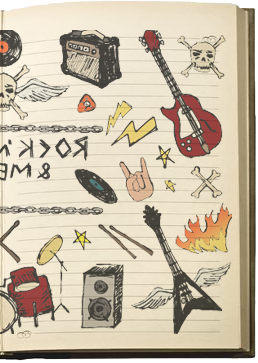 ROCK'N
& ME